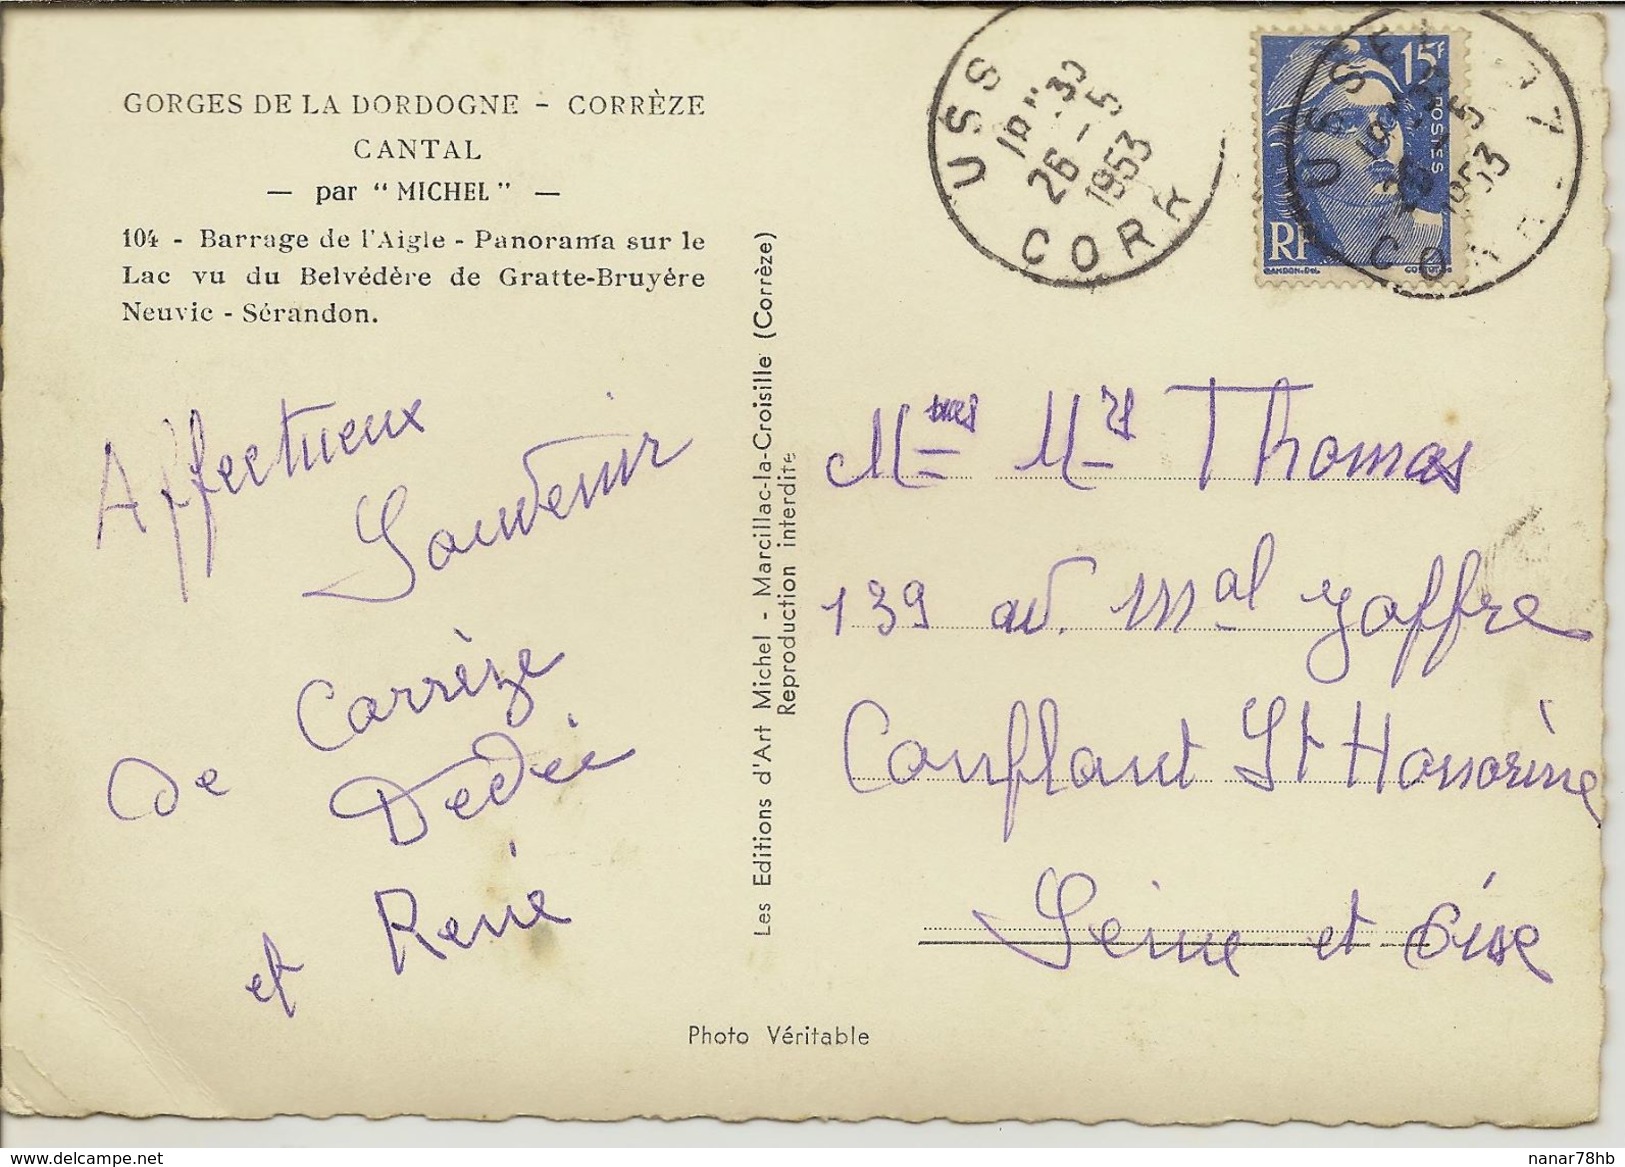 GORGES DE LA DORDOGNE - CORRÈZE
CANTAL
— par "MICHEL" —
104 - Barrage de l'Aigle - Panorama sur le
Lac vu du Belvédère de Gratte-Bruyère
Neuvic - Sérandon.
Affectueux
Souvenir
de Corrèze
Dédée
et René
Les Editions d'Art Michel - Marcillac-la-Croisille (Corrèze)
Reproduction interdite
Photo Véritable
USS
26 - 5
1953
CORR
15F
POSTES
RF
USSEL
1953
CORR
Mmes Mrs Thomas
139 av. Mal Joffre
Conflant St Honorine
Seine et Oise
delcampe.net
nanar78hb